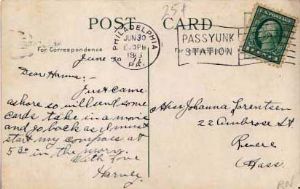 25¢
POST CARD
PHILADELPHIA
JUN 30
PA.
PASSYUNK
STATION
For Correspondence
June 30
Dear Hanna;
Just came
ashore so will send some
cards take in a movie
and go back as I must
start my compass at
5 30 in the morng.
With love
Harvey
Miss Johanna Lorentzen
22 Ambrose St
Revere
Mass.